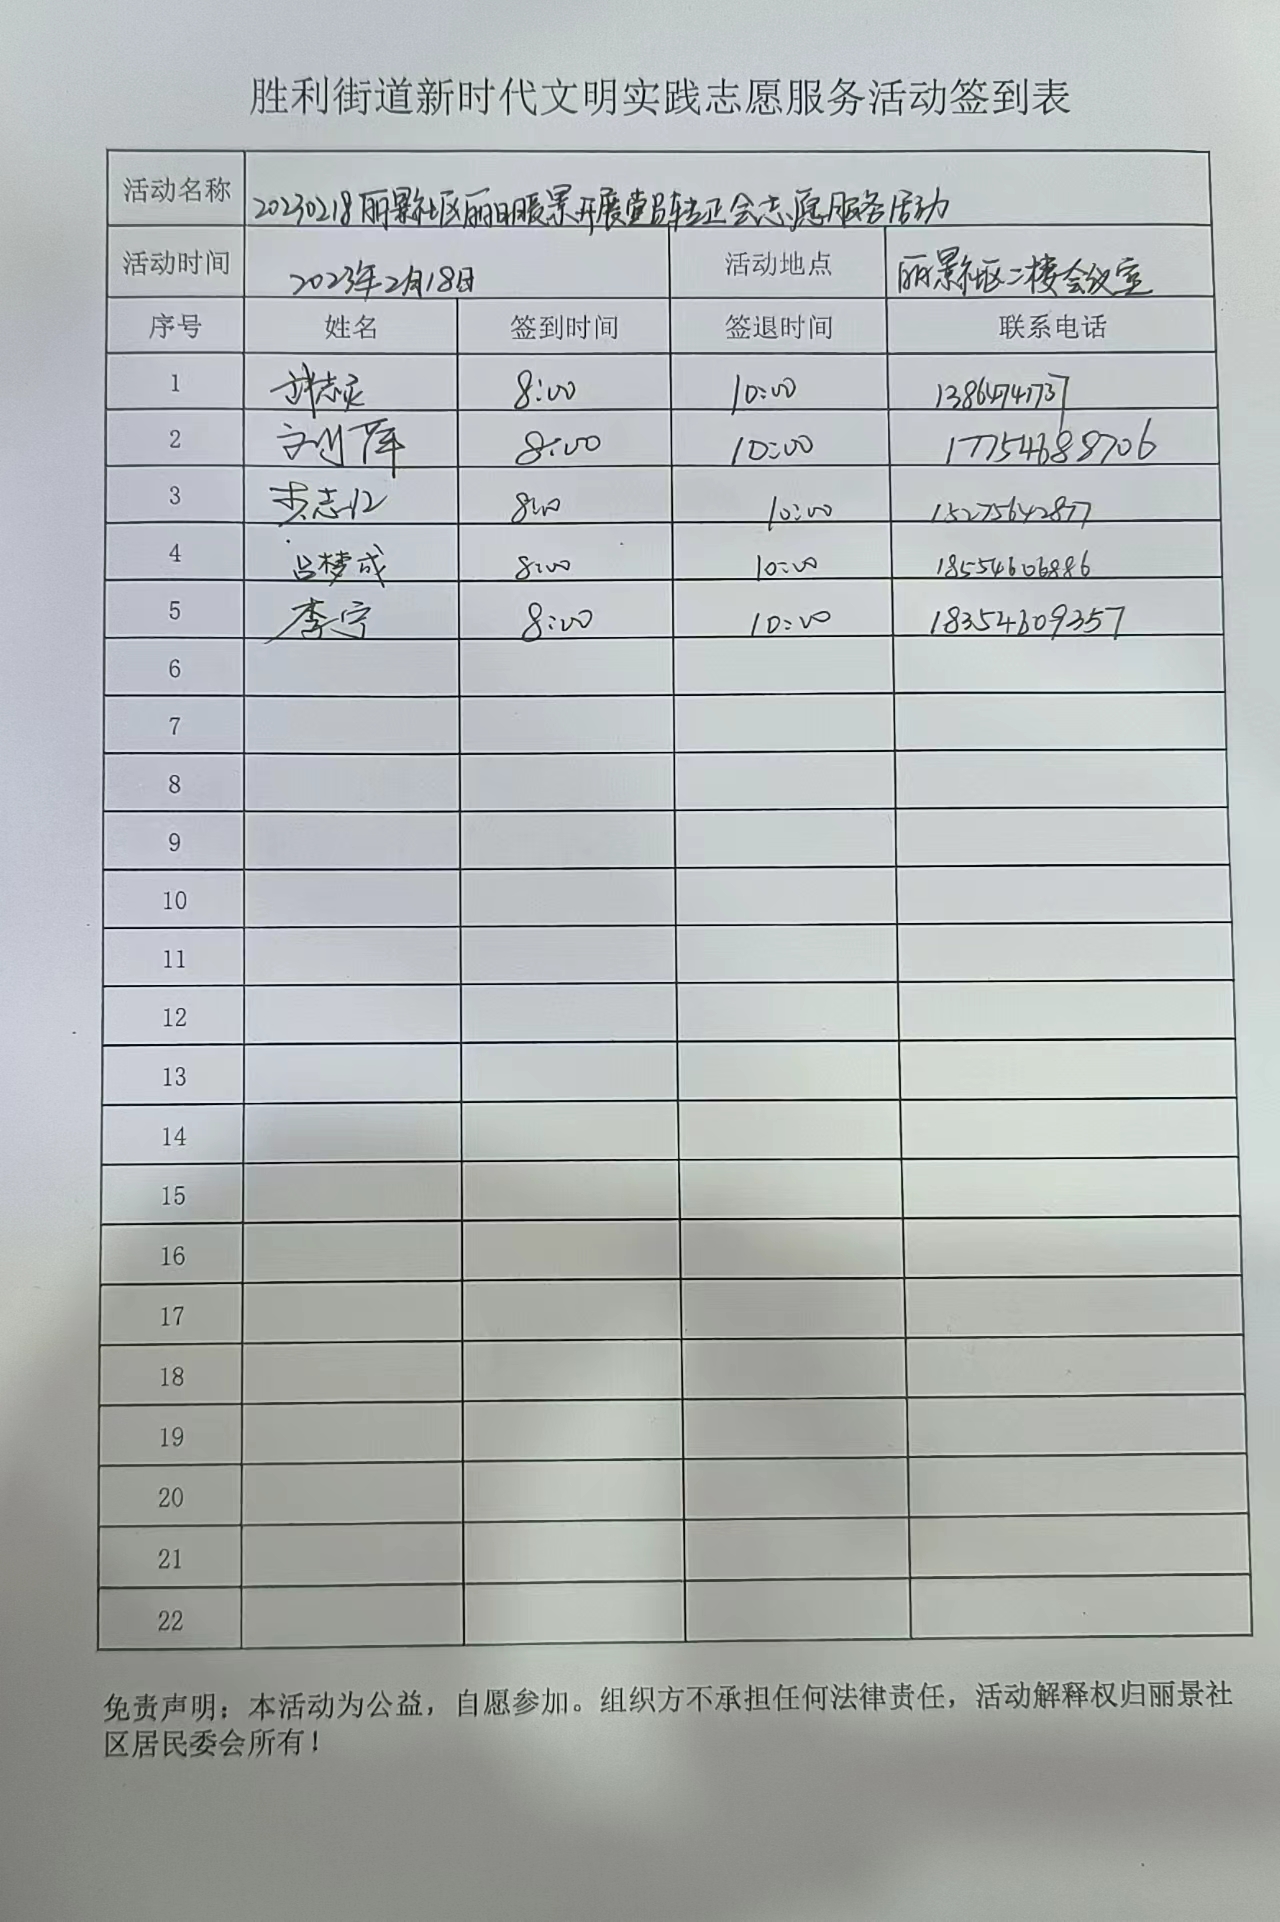 胜利街道新时代文明实践志愿服务活动签到表
活动名称 20230218丽景社区丽日暖景开展党员转正会志愿服务活动
活动时间 2023年2月18日 活动地点 丽景社区二楼会议室
序号 姓名 签到时间 签退时间 联系电话
1 8:00 10:00
2 8:00 10:00 17754688706
3 8:00 10:00 15275642877
4 吕梦成 8:00 10:00 18554606886
5 李宁 8:00 10:00 18354609357
6
7
8
9
10
11
12
13
14
15
16
17
18
19
20
21
22
免责声明：本活动为公益，自愿参加。组织方不承担任何法律责任，活动解释权归丽景社
区居民委会所有！